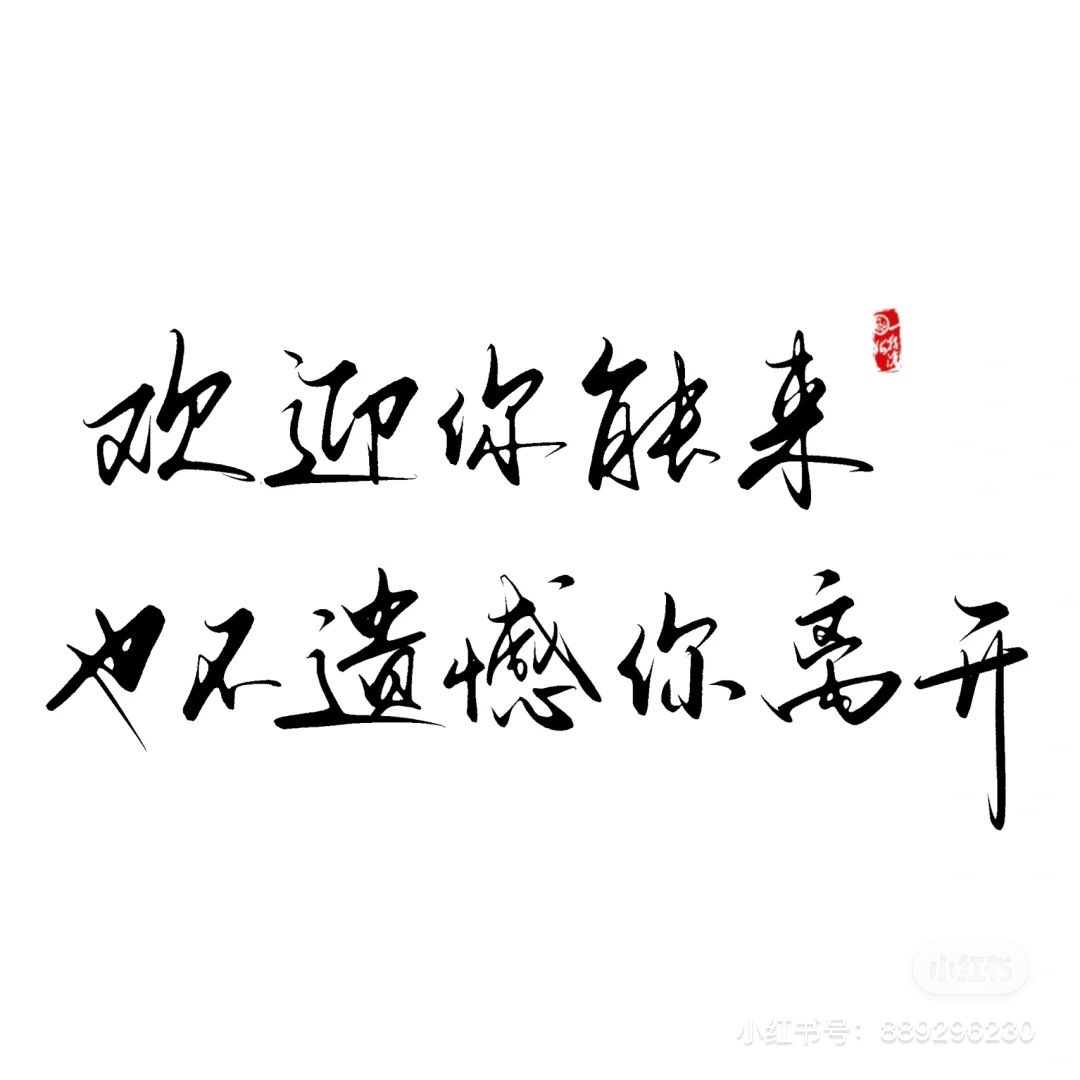 欢迎你能来
也不遗憾你离开
小红书
小红书号：889296230